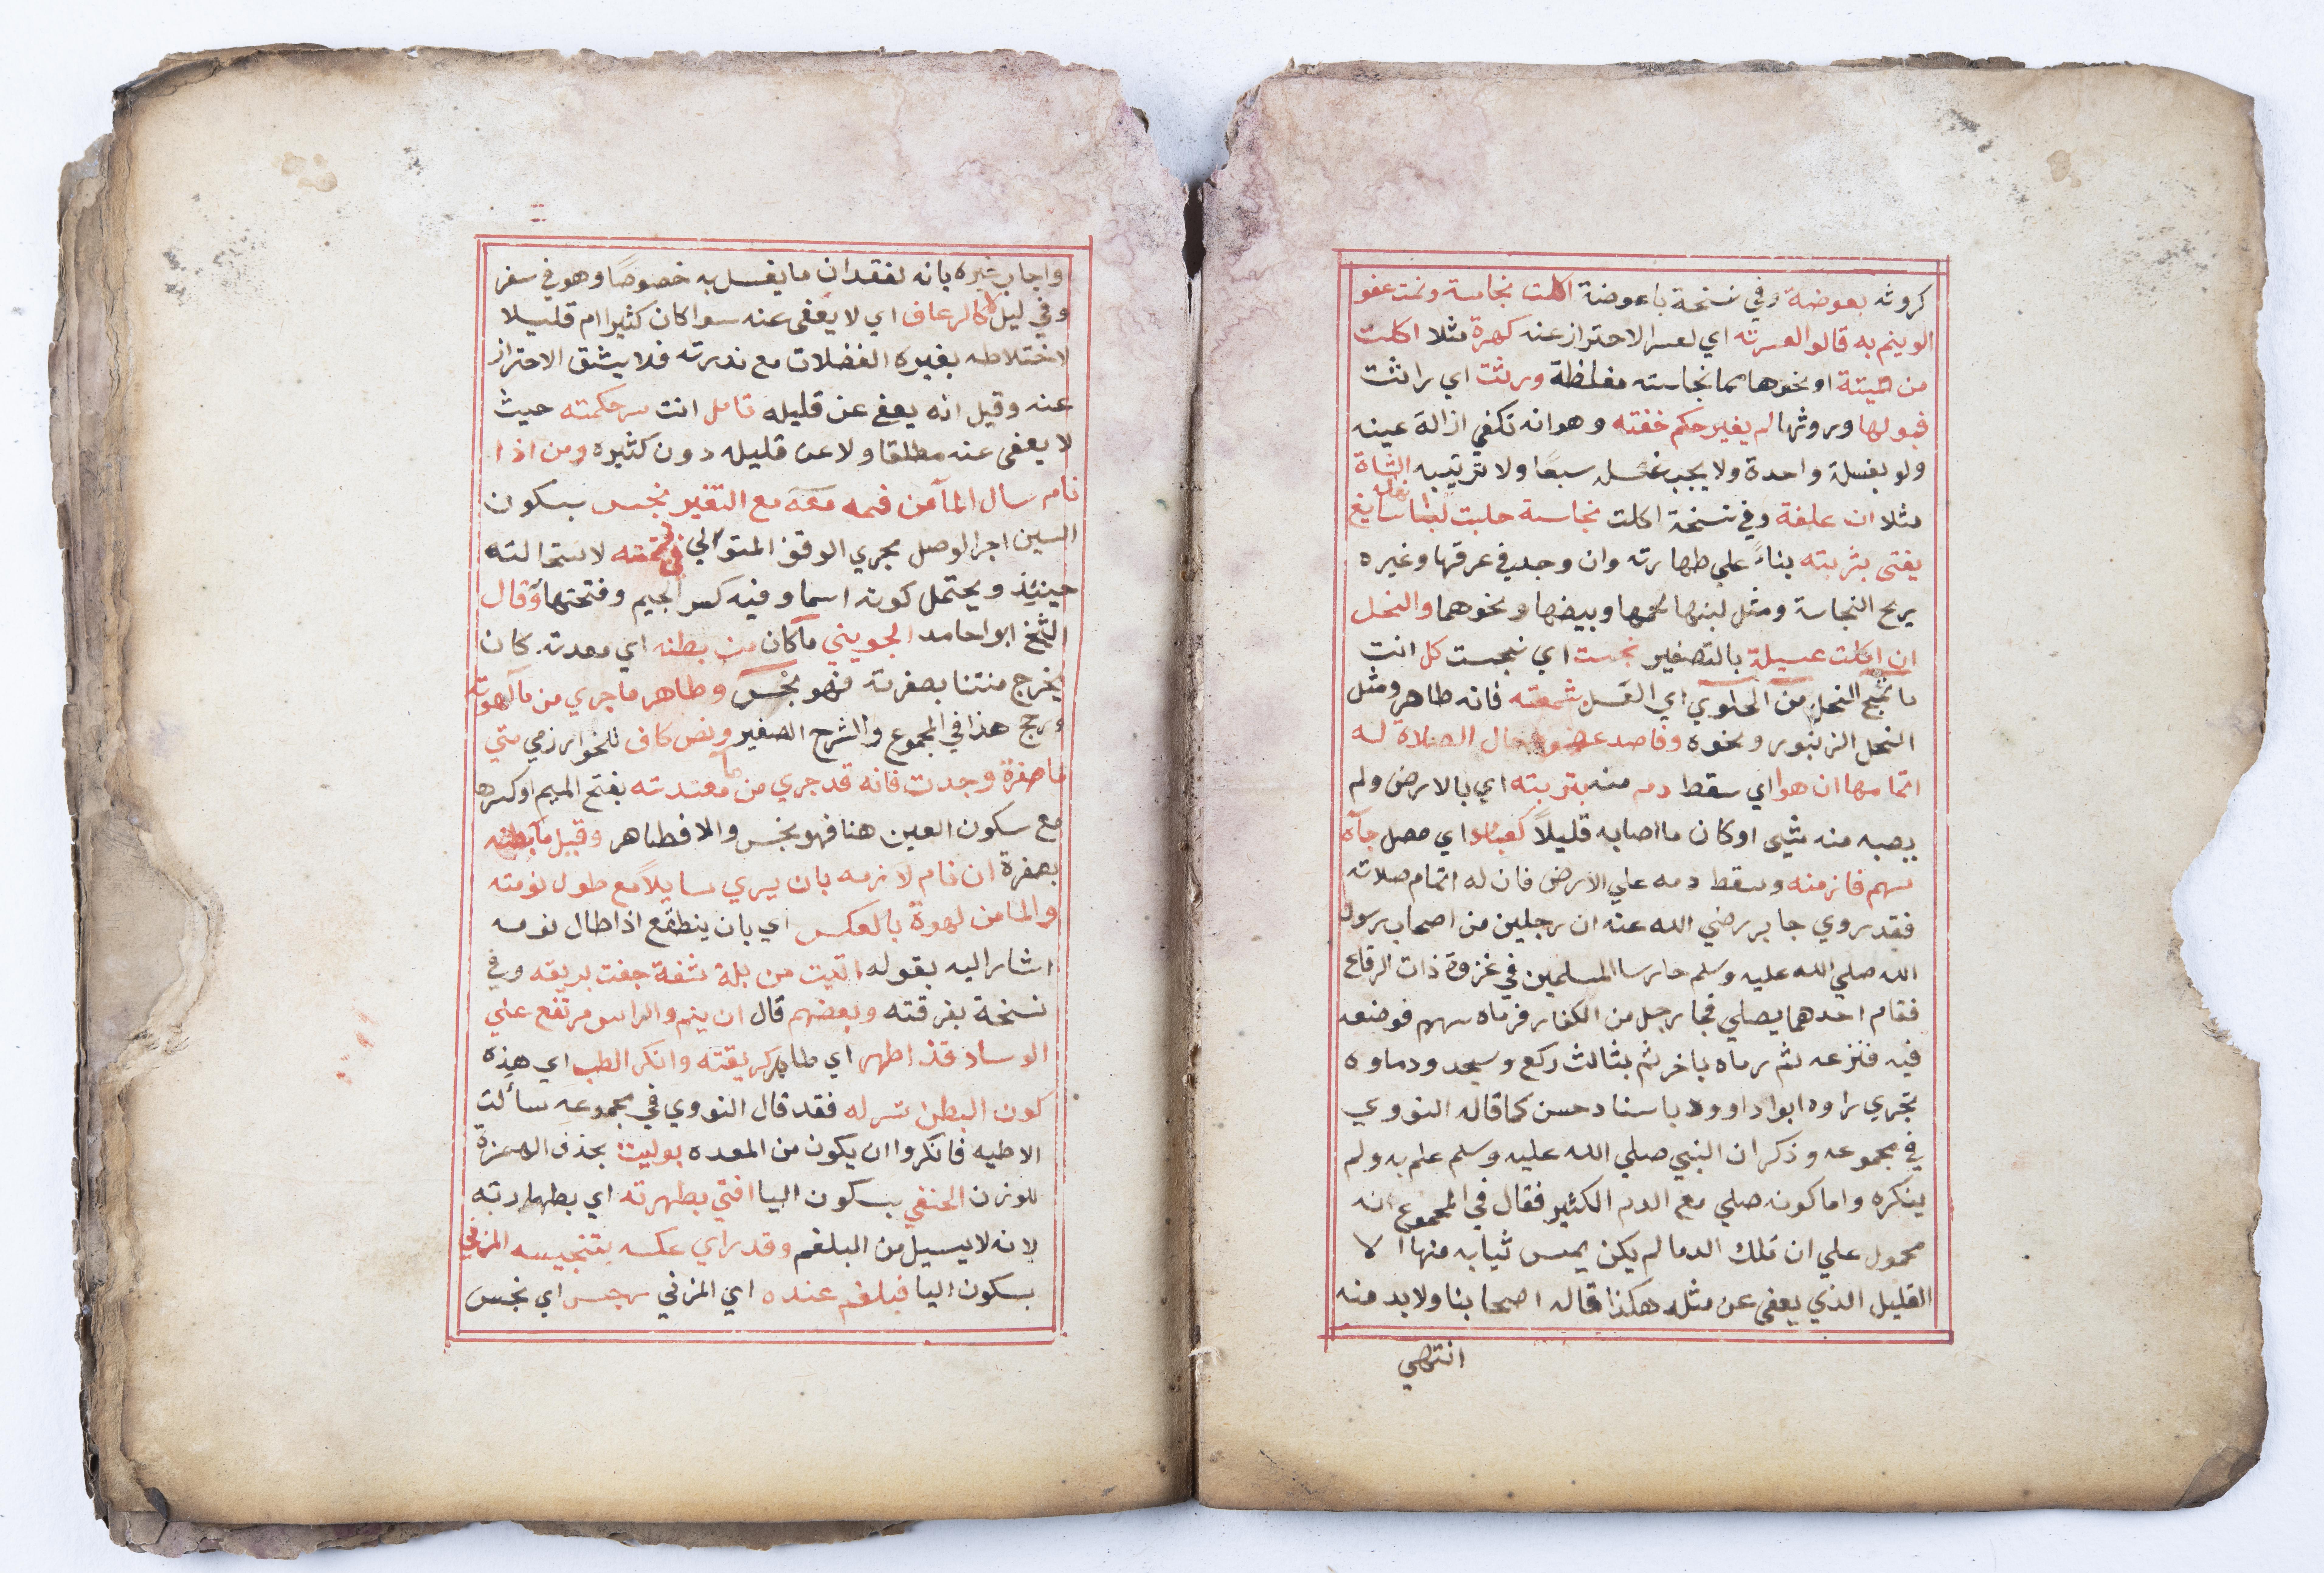 كروثه بعوضة وفي نسخة باعوضة اكلت نجاسة ونمت عفو
الونيم به قالوا لعسرته اي لعسر الاحتراز عنه كهرة مثلا اكلت
من الميتة او نحوها مما نجاسته مغلظة ورثت اي راثت
فبولها وروثها لم يغير حكم خفته وهو انه تكفي ازالة عينه
ولو بغسلة واحدة ولا يجب غسله سبعًا ولا تتريبه الشاة
مثلا ان علفة وفي نسخة اكلت نجاسة حلبت لبنا سايغ
يفتى بشربته بناءً علي طهارته وان وجد في عرقها وغيره
يريح النجاسة ومثل لبنها لحمها وبيضها ونحوهما والنحل
ان اكلت عسيلة بالتصغير نجست اي نجست كل انت
ما تمج النحل من الحلوي اي العسل شمعته فانه طاهر ومثل
النحل الزنبور ونحوه وفاصد عضو حال الصلاة له
اتمامها ان هوا اي سقط دمه منه بتربته اي بالارض ولم
يصبه منه شيى او كان ما اصابه قليلاً اي حصل جآه
سهم فانز منه وسقط دمه علي الارض فان له اتمام صلاته
فقد روي جابر رضي الله عنه ان رجلين من اصحاب رسول
الله صلي الله عليه وسلم حارسا المسلمين في غزوة ذات الرقاع
فقام احدهما يصلي فجا رجل من الكفار فرماه بسهم فوضعه
فيه فنزعه ثم رماه باخر ثم بثالث ركع وسجد ودماوه
تجري راوه ابوا داوود باسناد حسن كما قاله النووي
في مجموعه وذكر ان النبي صلي الله عليه وسلم علم به ولم
ينكره واما كونه صلي مع الدم الكثير فقال في المجموع انه
محمول علي ان تلك الدما لم يكن يمس ثيابه منها الا
القليل الذي يعفى عن مثله هكذا قاله اصحابنا ولا بد منه
انتهي
واجاب غيره بانه لفقدان ما يغسل به خصوصًا وهو في سفر
وفي ليل كالرعاف اي لا يعفى عنه سوا كان كثيرا ام قليلا
لاختلاطه بغيره الفضلات مع ندرته فلا يشق الاحتراز
عنه وقيل انه يعفى عن قليله تامل انت سر حكمته حيث
لا يعفى عنه مطلقا ولا عن قليله دون كثيره ومن اذا
نام سال المآ من فمه معه مع التغير نجس بسكون
السين اجرا لوصل مجري الوقف المتوالي في تتمته لاستحالته
حينيذ ويحتمل كونه اسما وفيه كسر الجيم وفتحتها وقال
الشخ ابوا حامد الجويني ما كان من بطنه اي معدته كان
يخرج منتنا بصفرته فهو نجس وطاهر ما جري من مآ لهوته
ورجح هذا في المجموع والشرح الصغير ونص كاف للخوارزمي متي
ما صفرة وجدت فانه قد جري من مآ معندته بفتح الميم او كسرها
مع سكون العين هنا فهو نجس والا فطاهر وقيل مآ بطنه
بصفرة ان نام لازمه بان يسري سايلاً مع طول نومته
والما من لهوة بالعكس اي بان ينطقع اذا طال نومه
اشار اليه بقوله اتيت من بلة شفة جفت بريقه وفي
نسخة بفرقته وبعضهم قال ان ينم والراس مرتفع علي
الوساد قذ اطهر اي طاهر كريقته وانكر الطب اي هذه
كون البطن تسرله فقد قال النووي في مجموعه سألت
الاطيه فانكروا ان يكون من المعده بوليت بحذف الهمزة
للوزن الحنفي بسكون اليا افتي بطهرته اي بطهاردته
لانه لا يسيل من البلغم وقد راي عكسه بتنجيسه المزني
بسكون اليا فبلغم عنده اي المزني رجس اي نجس